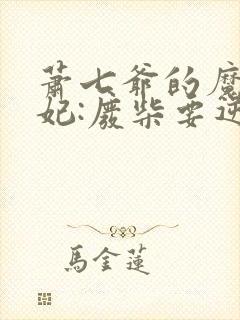 萧七爷的魔
妃:废柴要逆
馬金蓮